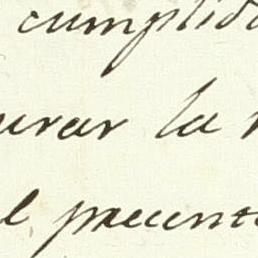 cumplid
urar la
l precente